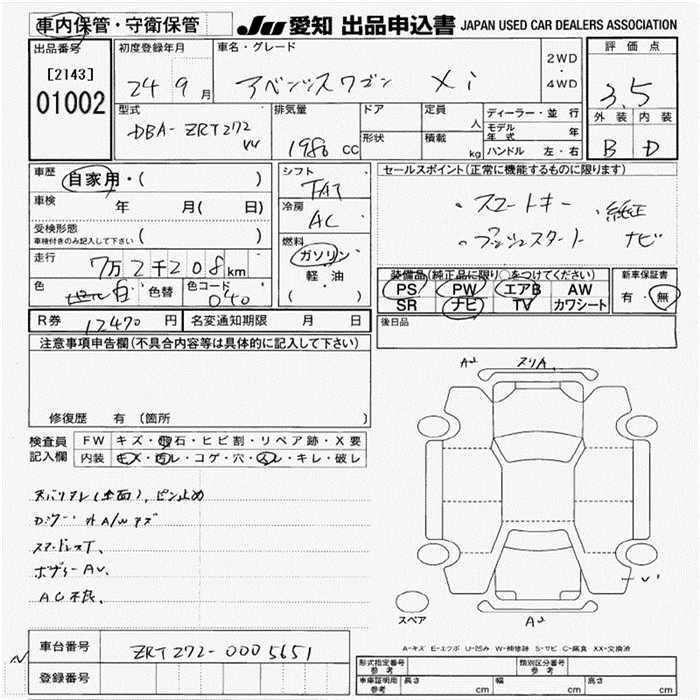 車内保管・守衛保管
JU 愛知 出品申込書 JAPAN USED CAR DEALERS ASSOCIATION
出品番号
[2143]
01002
初度登録年月
24 9 月
車名・グレード
アベンシスワゴン Xi
2WD
・
4WD
評価点
3.5
外装 内装
B D
型式
DBA-ZRT272W
排気量
1980 cc
ドア
形状
定員
人
積載
kg
ディーラー・並行
モデル年式 年
ハンドル 左・右
車歴
自家用・( )
車検
年 月( 日)
受検形態
車検付きのみ記入して下さい ( )
走行
7万2千208km
色
白
色替
色コード
040
シフト
FAT
冷房
AC
燃料
ガソリン
軽・油
( )
セールスポイント(正常に機能するものに限ります)
・スマートキー ・純正
・プッシュスタート ナビ
装備品(純正品に限り○をつけてください)
PS PW エアB AW
SR ナビ TV カワシート
新車保証書
有・無
R券 12470 円
名変通知期限 月 日
後日品
注意事項申告欄(不具合内容等は具体的に記入して下さい)
修復歴 有 (箇所
検査員
記入欄
FW キズ・飛石・ヒビ割・リペア跡・X要
内装 キズ・汚レ・コゲ・穴・スレ・キレ・破レ
ピン止め
外A/Wキズ
ボディーAU、
AC不良、
A2 スリA、
U1
A2
スペア
A-キズ E-エクボ U-凹み W-補修跡 S-サビ C-腐食 XX-交換済
車台番号
ZRT272-0005651
登録番号
形式指定番号
参考
類別区分番号
参考
車庫証明用
参考
長さ cm 幅 cm 高さ cm